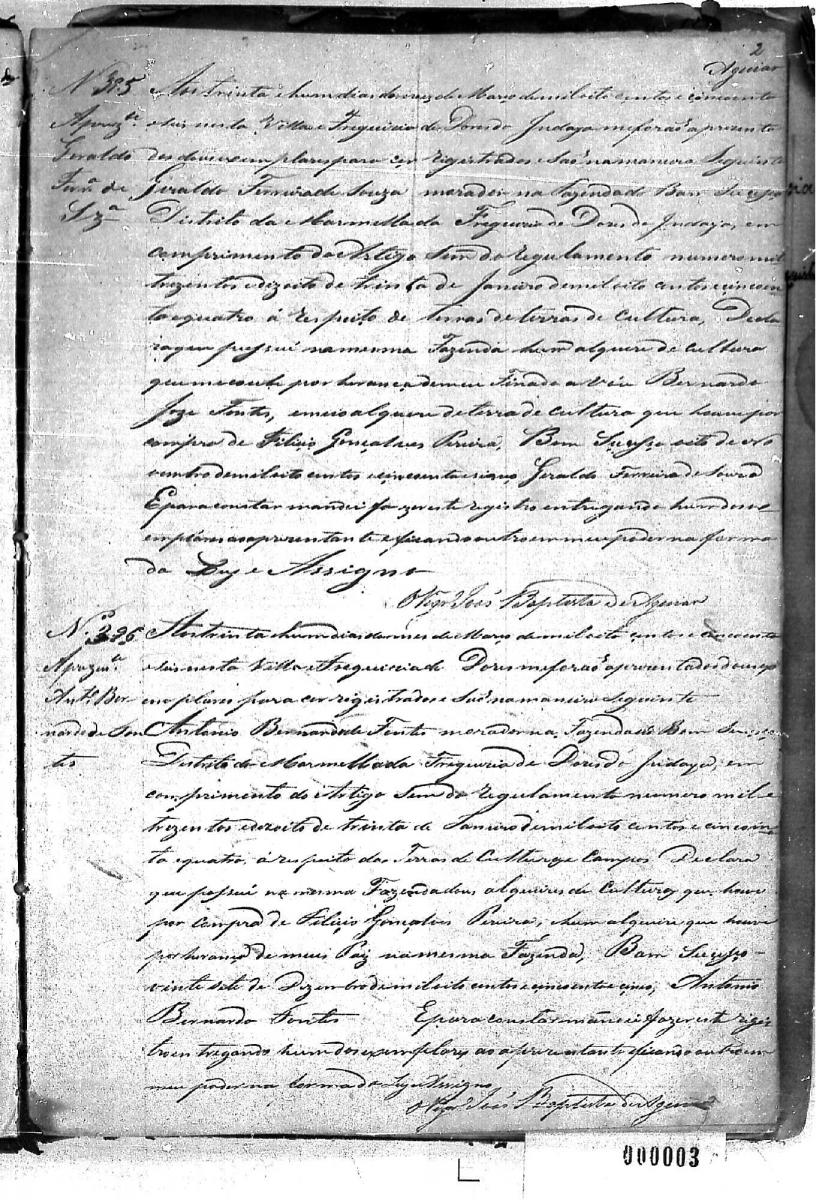 2
Aguiar
N. 385 Aos trinta e hum dias do mez de Março de mil oito centos e cincoenta
Aprez.te e seis nesta Villa e Freguizia de Dores do Indaya me forão aprezenta
Geraldo dos dous exemplares para cer rigistrados e São na maneira Seguinte
Ferr.a de Giraldo Ferreira de Souza morador na Fazenda do Bam Sucesso
Sz.a Districto da Marmellada Freguizia de Dores do Indaya, em
comprimento do Artigo Sem do regulamento numero mil
trezentos e dizoito de trinta de Janeiro de mil oito centos e cincoin
ta e quatro á respeito de terras de terras de cultura, Decla
ra que possui na mesma Fazenda hum alqueire de cultura
que me coube por herança de meu Finado a Vou Bernardo
Joze Fontes, e meio alqueire de terra de cultura que houve por
compra de Filicio Gonçalves Pereira, Bom Sucesso oito de No
vembro de mil oito centos e cincoenta e cinco Geraldo Ferreira de Souza
E para constar mandei fazer este registro entregando hum dos ex
emplares ao aprezentante e ficando outro em meu poder na forma
da Ley e Assigno
O Vigr.o José Baptista de Aguiar
N.o 326 Aos trinta e hum dias do mes de Março de mil oito centos e cincoenta
Aprezen.te e seis nesta Villa e Freguizia de Dores me forão aprezentados dous ex
Ant.o Ber- emplares para cer rigistrados e São na maneira Seguinte
nardo de Fon Antonio Bernardo de Fontes morador na Fazenda do Bom Sucesso
tes Distrito da Marmellada Freguizia de Dores do Indaya, em
comprimento do Artigo Sem do regulamento numero mil e
trezentos e dezoito de trinta de Janeiro de mil oito centos e cincoin
ta e quatro, á respeito das Terras de Cultura e Campos Declara
que possui na mesma Fazenda dous alqueires de Culturas que houve
por compra de Filicio Gonçalves Pereira, e hum alqueire que houve
por herança de meus Paiz na mesma Fazenda, Bam Sucesso
vinte sete de Dezembro de mil oito centos e cincoenta e cinco, Antonio
Bernardo Fontes E para constar mandei fazer este regis
tro entregando hum dos exemplares ao aprezentante e ficando outro em
meu poder na forma da Ley e Assigno
O Vigr.o José Baptista de Aguiar
000003